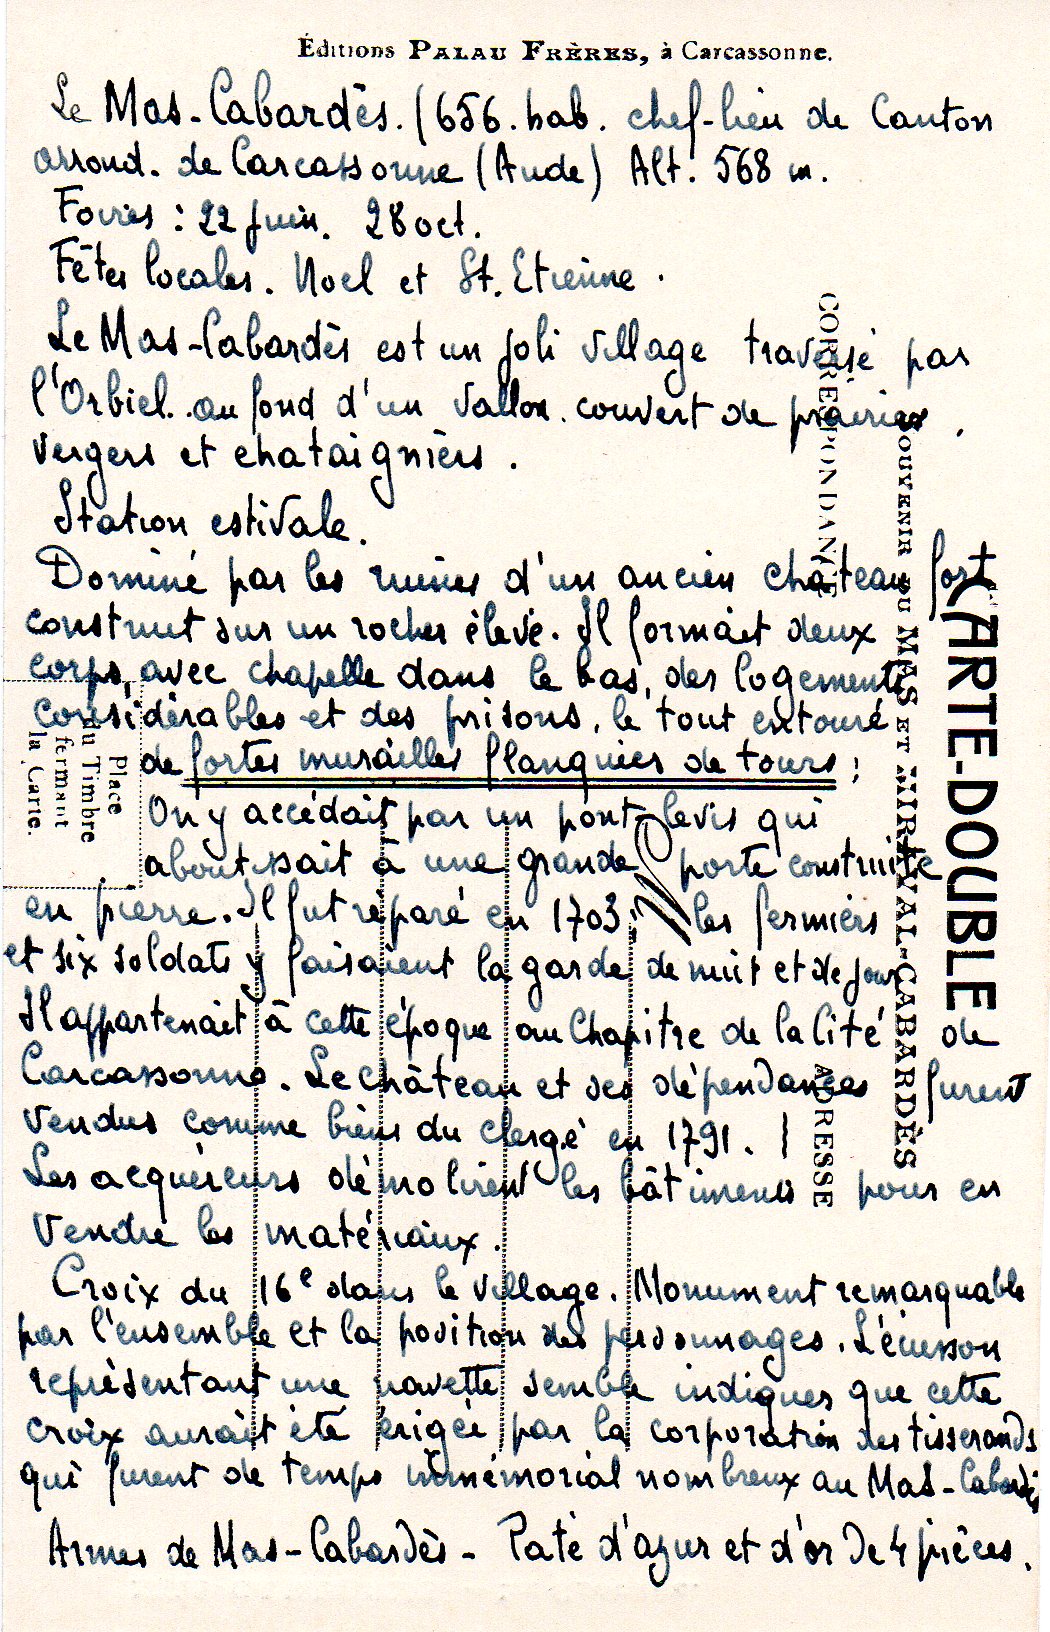 Éditions PALAU FRÈRES, à Carcassonne.
Le Mas-Cabardès. (656. hab. chef-lieu de Canton
arrond. de Carcassonne (Aude) Alt. 568 m.
Foires : 22 juin. 28 oct.
Fêtes locales. Noel et St. Etienne.
Le Mas-Cabardès est un joli village traversé par
l'Orbiel. au fond d'un vallon. couvert de prairies,
vergers et chataigniers.
Station estivale.
Dominé par les ruines d'un ancien château fort
construit sur un rocher élevé. Il formait deux
corps, avec chapelle dans le bas, des logements
considérables et des prisons, le tout entouré
de fortes murailles flanquées de tours ;
On y accédait par un pont-levis qui
aboutissait à une grande porte construite
en pierre. Il fut réparé en 1703 : les fermiers
et six soldats y faisaient la garde de nuit et de jour
Il appartenait à cette époque au Chapitre de la Cité de
Carcassonne. Le château et ses dépendances furent
vendus comme biens du clergé en 1791.
Les acquéreurs démolirent les bâtiments pour en
vendre les matériaux.
Croix du 16e dans le village. Monument remarquable
par l'ensemble et la position des personnages. L'écusson
représentant une navette semble indiquer que cette
croix aurait été érigée par la corporation des tisserands
qui furent de temps immémorial nombreux au Mas-Cabardès
Armes de Mas-Cabardès - Paté d'azur et d'or de 4 pièces.
CARTE-DOUBLE
SOUVENIR DU MAS ET MIRAVAL-CABARDÈS
CORRESPONDANCE
ADRESSE
Place
du Timbre
fermant
la Carte.